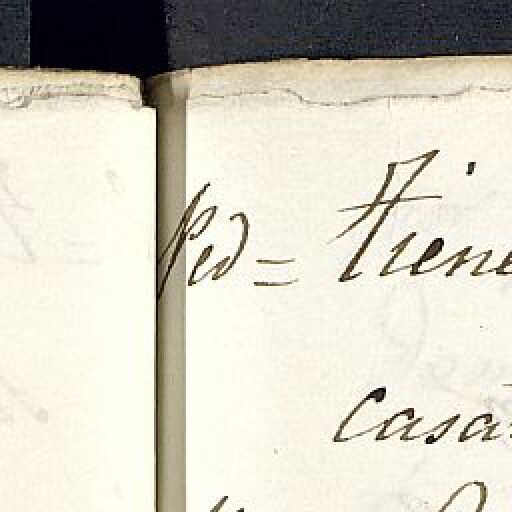 Ped = Tiene
casa